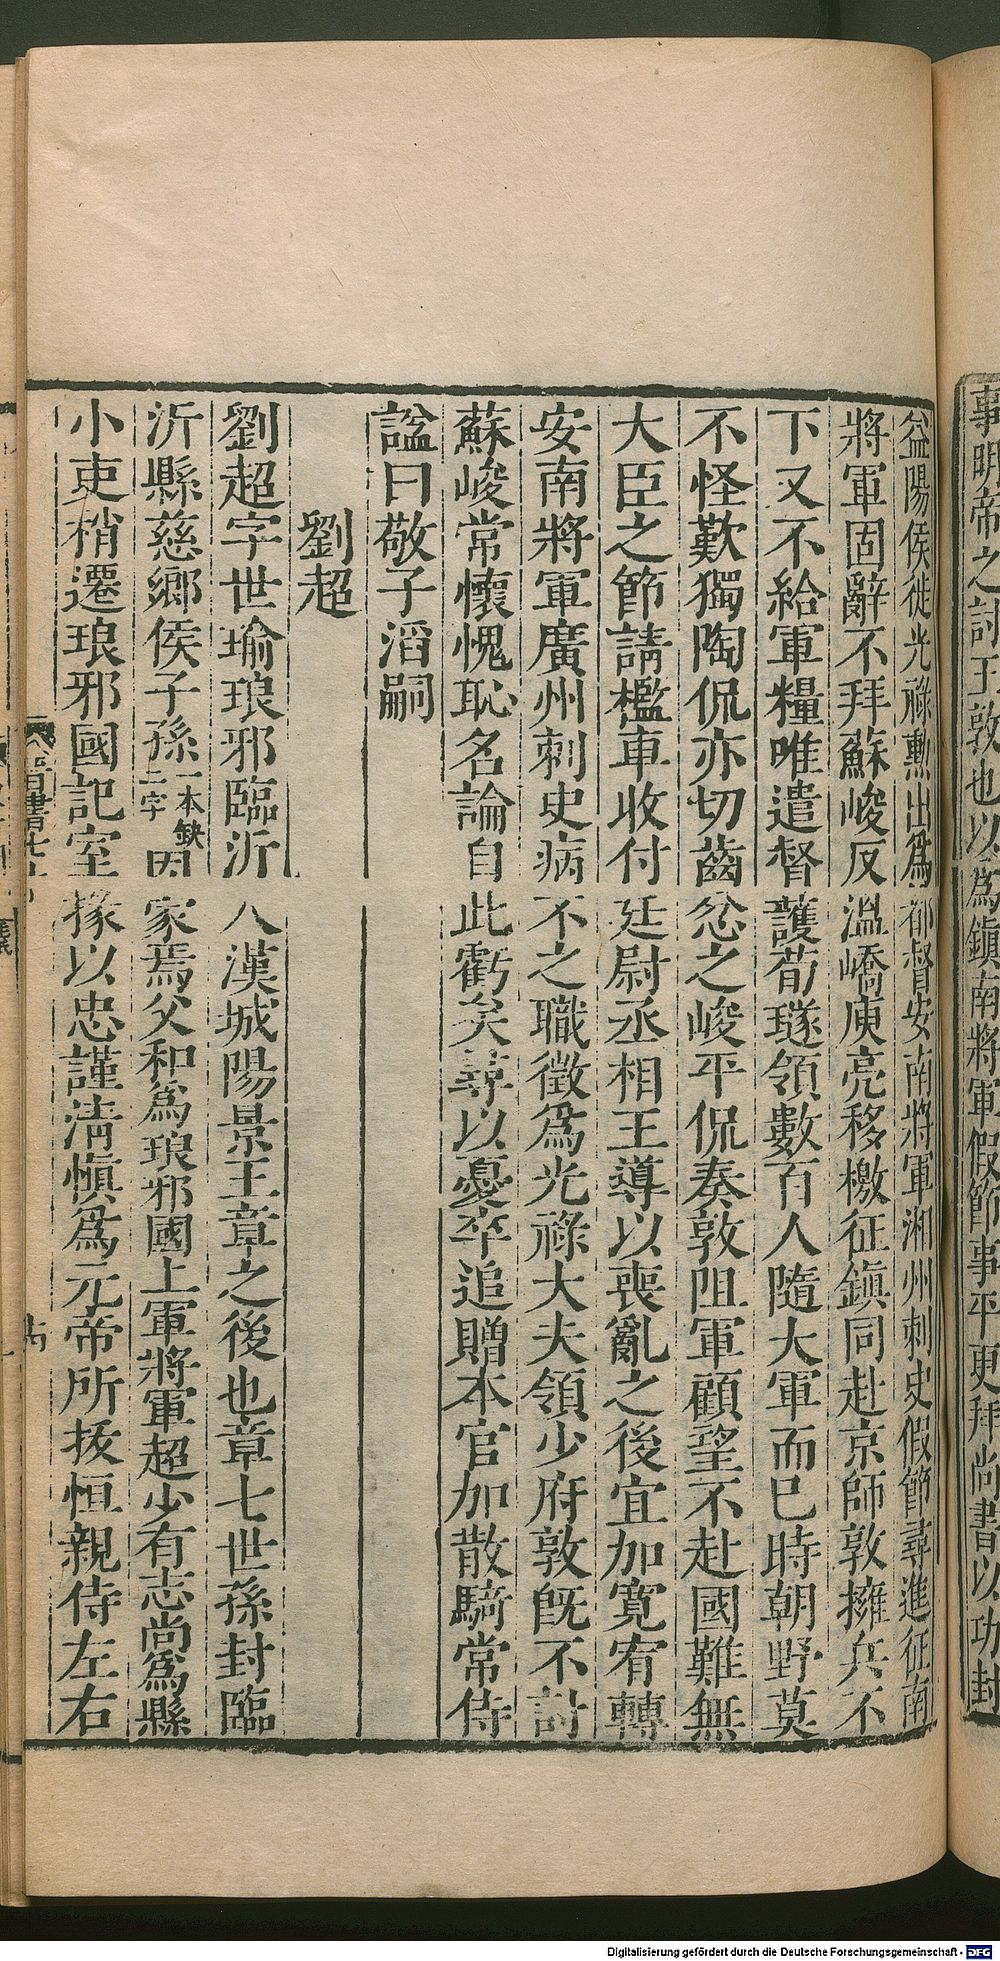 事明帝之討王敦也以爲鎮南將軍假節事平更拜尚書以功封
益陽侯徙光祿勳出爲都督安南將軍湘州刺史假節尋進征南
將軍固辭不拜蘇峻反溫嶠庾亮移檄征鎮同赴京師敦擁兵不
下又不給軍糧唯遣督護荀璲領數百人隨大軍而巳時朝野莫
不怪歎獨陶侃亦切齒忿之峻平侃奏敦阻軍顧望不赴國難無
大臣之節請檻車收付廷尉丞相王導以喪亂之後宜加寬宥轉
安南將軍廣州刺史病不之職徵爲光祿大夫領少府敦旣不討
蘇峻常懷愧恥名論自此虧矣尋以憂卒追贈本官加散騎常侍
諡曰敬子滔嗣
劉超
劉超字世瑜琅邪臨沂人漢城陽景王章之後也章七世孫封臨
沂縣慈鄉侯子孫一本缺二字因家焉父和爲琅邪國上軍將軍超少有志尚爲縣
小吏稍遷琅邪國記室掾以忠謹清愼爲元帝所拔恒親侍左右
晋書七十
Digitalisierung gefördert durch die Deutsche Forschungsgemeinschaft - DFG